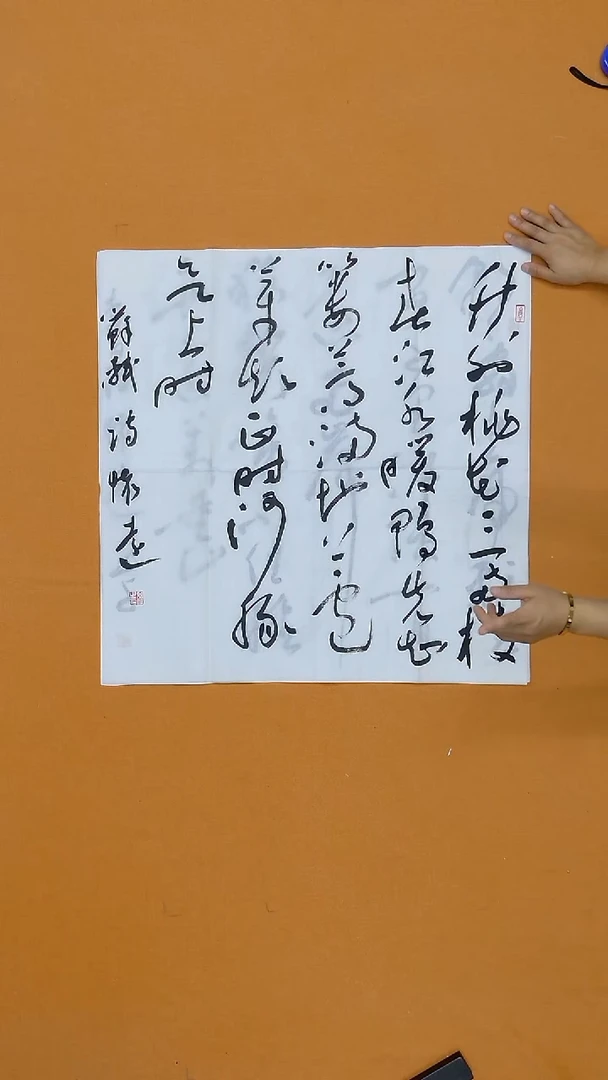 竹外桃花三两枝
春江水暖鸭先知
蒌蒿满地芦
芽短正时河豚
欲上时
蘇軾诗怀远